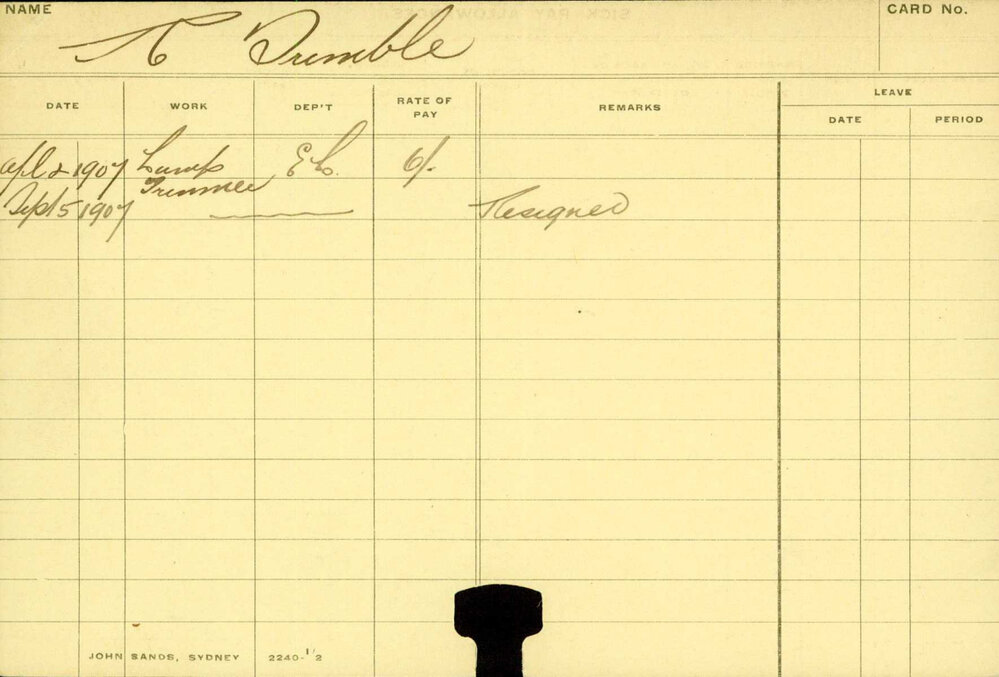 NAME
CARD No.
Trumble
DATE WORK DEP'T RATE OF PAY REMARKS LEAVE
DATE PERIOD
Apl 2 1907 Lamp Trimmer E L. 6/-
Sept 5 1907 Resigned
JOHN SANDS, SYDNEY 2240-1/2